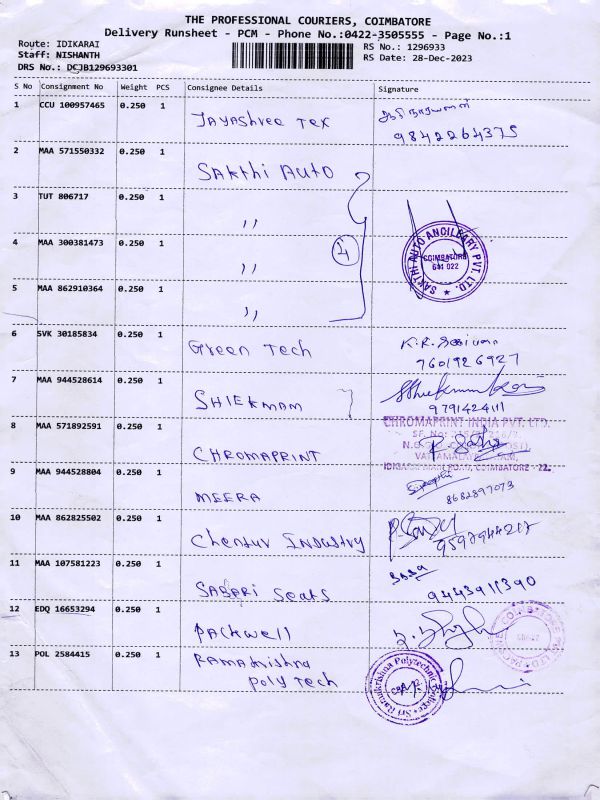 THE PROFESSIONAL COURIERS, COIMBATORE
Delivery Runsheet - PCM - Phone No.:0422-3505555 - Page No.:1
Route: IDIKARAI
RS No.: 1296933
Staff: NISHANTH
RS Date: 28-Dec-2023
DRS No.: DCJB129693301
S No Consignment No Weight PCS Consignee Details Signature
1 CCU 100957465 0.250 1 Jayashree Tex
9842264375
2 MAA 571550332 0.250 1 Sakthi Auto
3 TUT 806717 0.250 1 ,,
4 MAA 300381473 0.250 1 ,,
SAKTHI AUTO ANCILLARY PVT. LTD.
COIMBATORE
641 022
5 MAA 862910364 0.250 1 ,,
6 SVK 30185834 0.250 1 Green Tech K.R.
7601926927
7 MAA 944528614 0.250 1 SHIEKMAM
9791424111
8 MAA 571892591 0.250 1 CHROMAPRINT
CHROMAPRINT INDIA PVT. LTD.
IDIKARAI MAIN ROAD, COIMBATORE - 22.
9 MAA 944528804 0.250 1 MEERA
8682897073
10 MAA 862825502 0.250 1 Chentur Industry
9597944217
11 MAA 107581223 0.250 1 SABARI Seats
9443911390
12 EDQ 16653294 0.250 1 Packwell
13 POL 2584415 0.250 1 Ramakrishna
Poly Tech
Sri Ramakrishna Polytechnic College